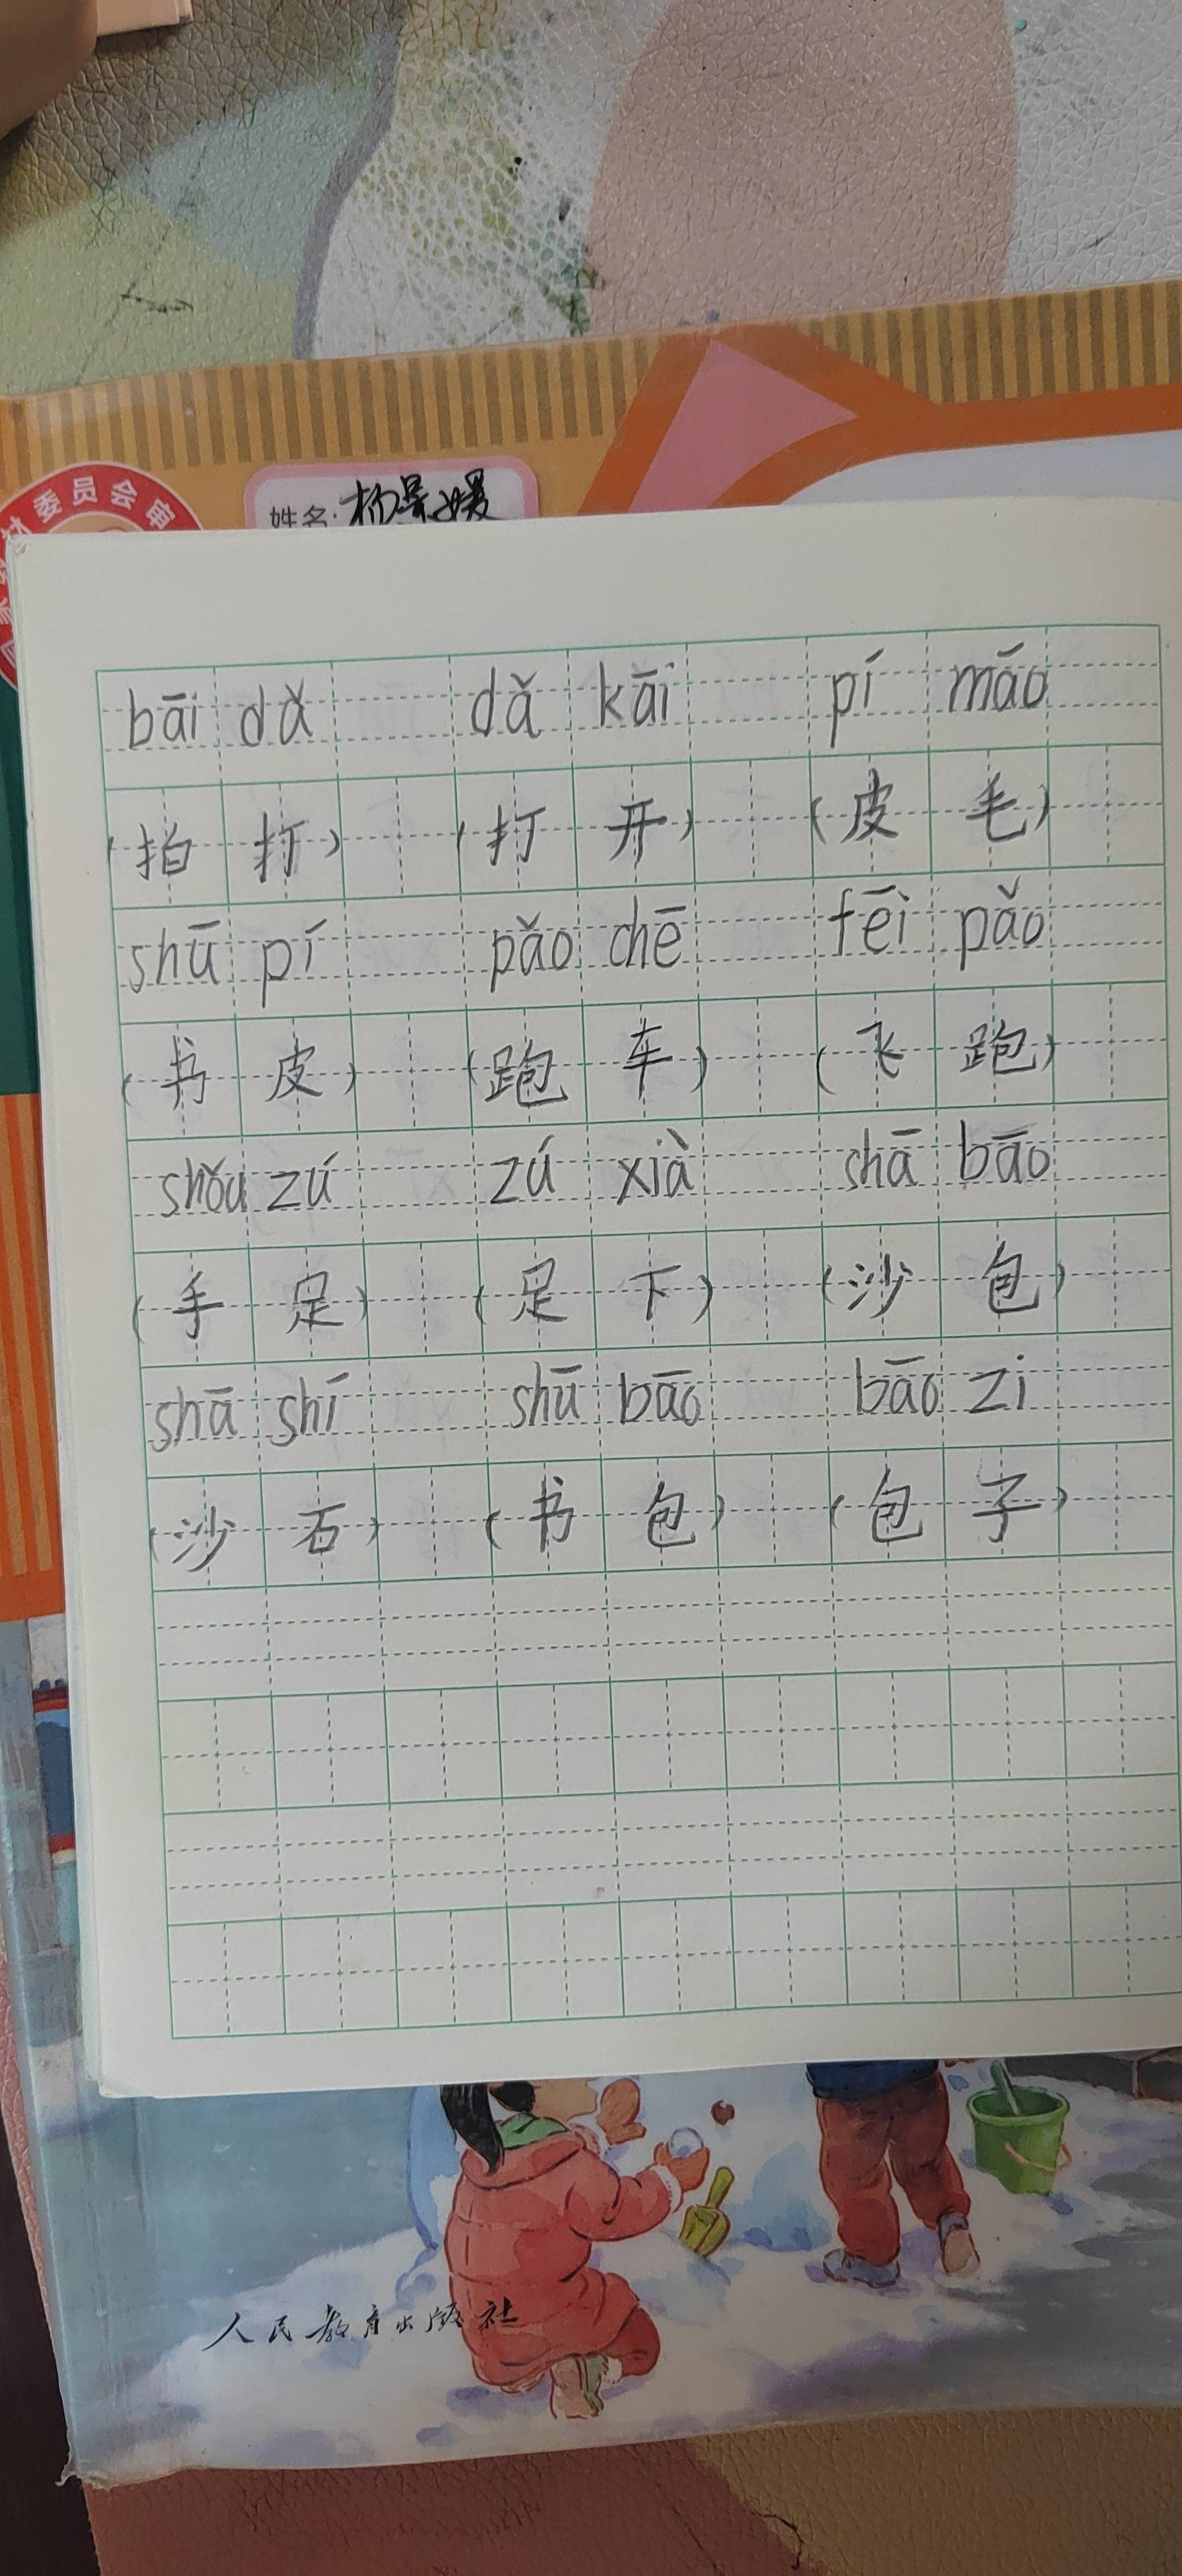 材委员会审
姓名:杨景媛
bāi dǎ dǎ kāi pí máo
(拍打) (打开) (皮毛)
shū pí pǎo chē fēi pǎo
(书皮) (跑车) (飞跑)
shǒu zú zú xià shā bāo
(手足) (足下) (沙包)
shā shí shū bāo bāo zi
(沙石) (书包) (包子)
人民教育出版社